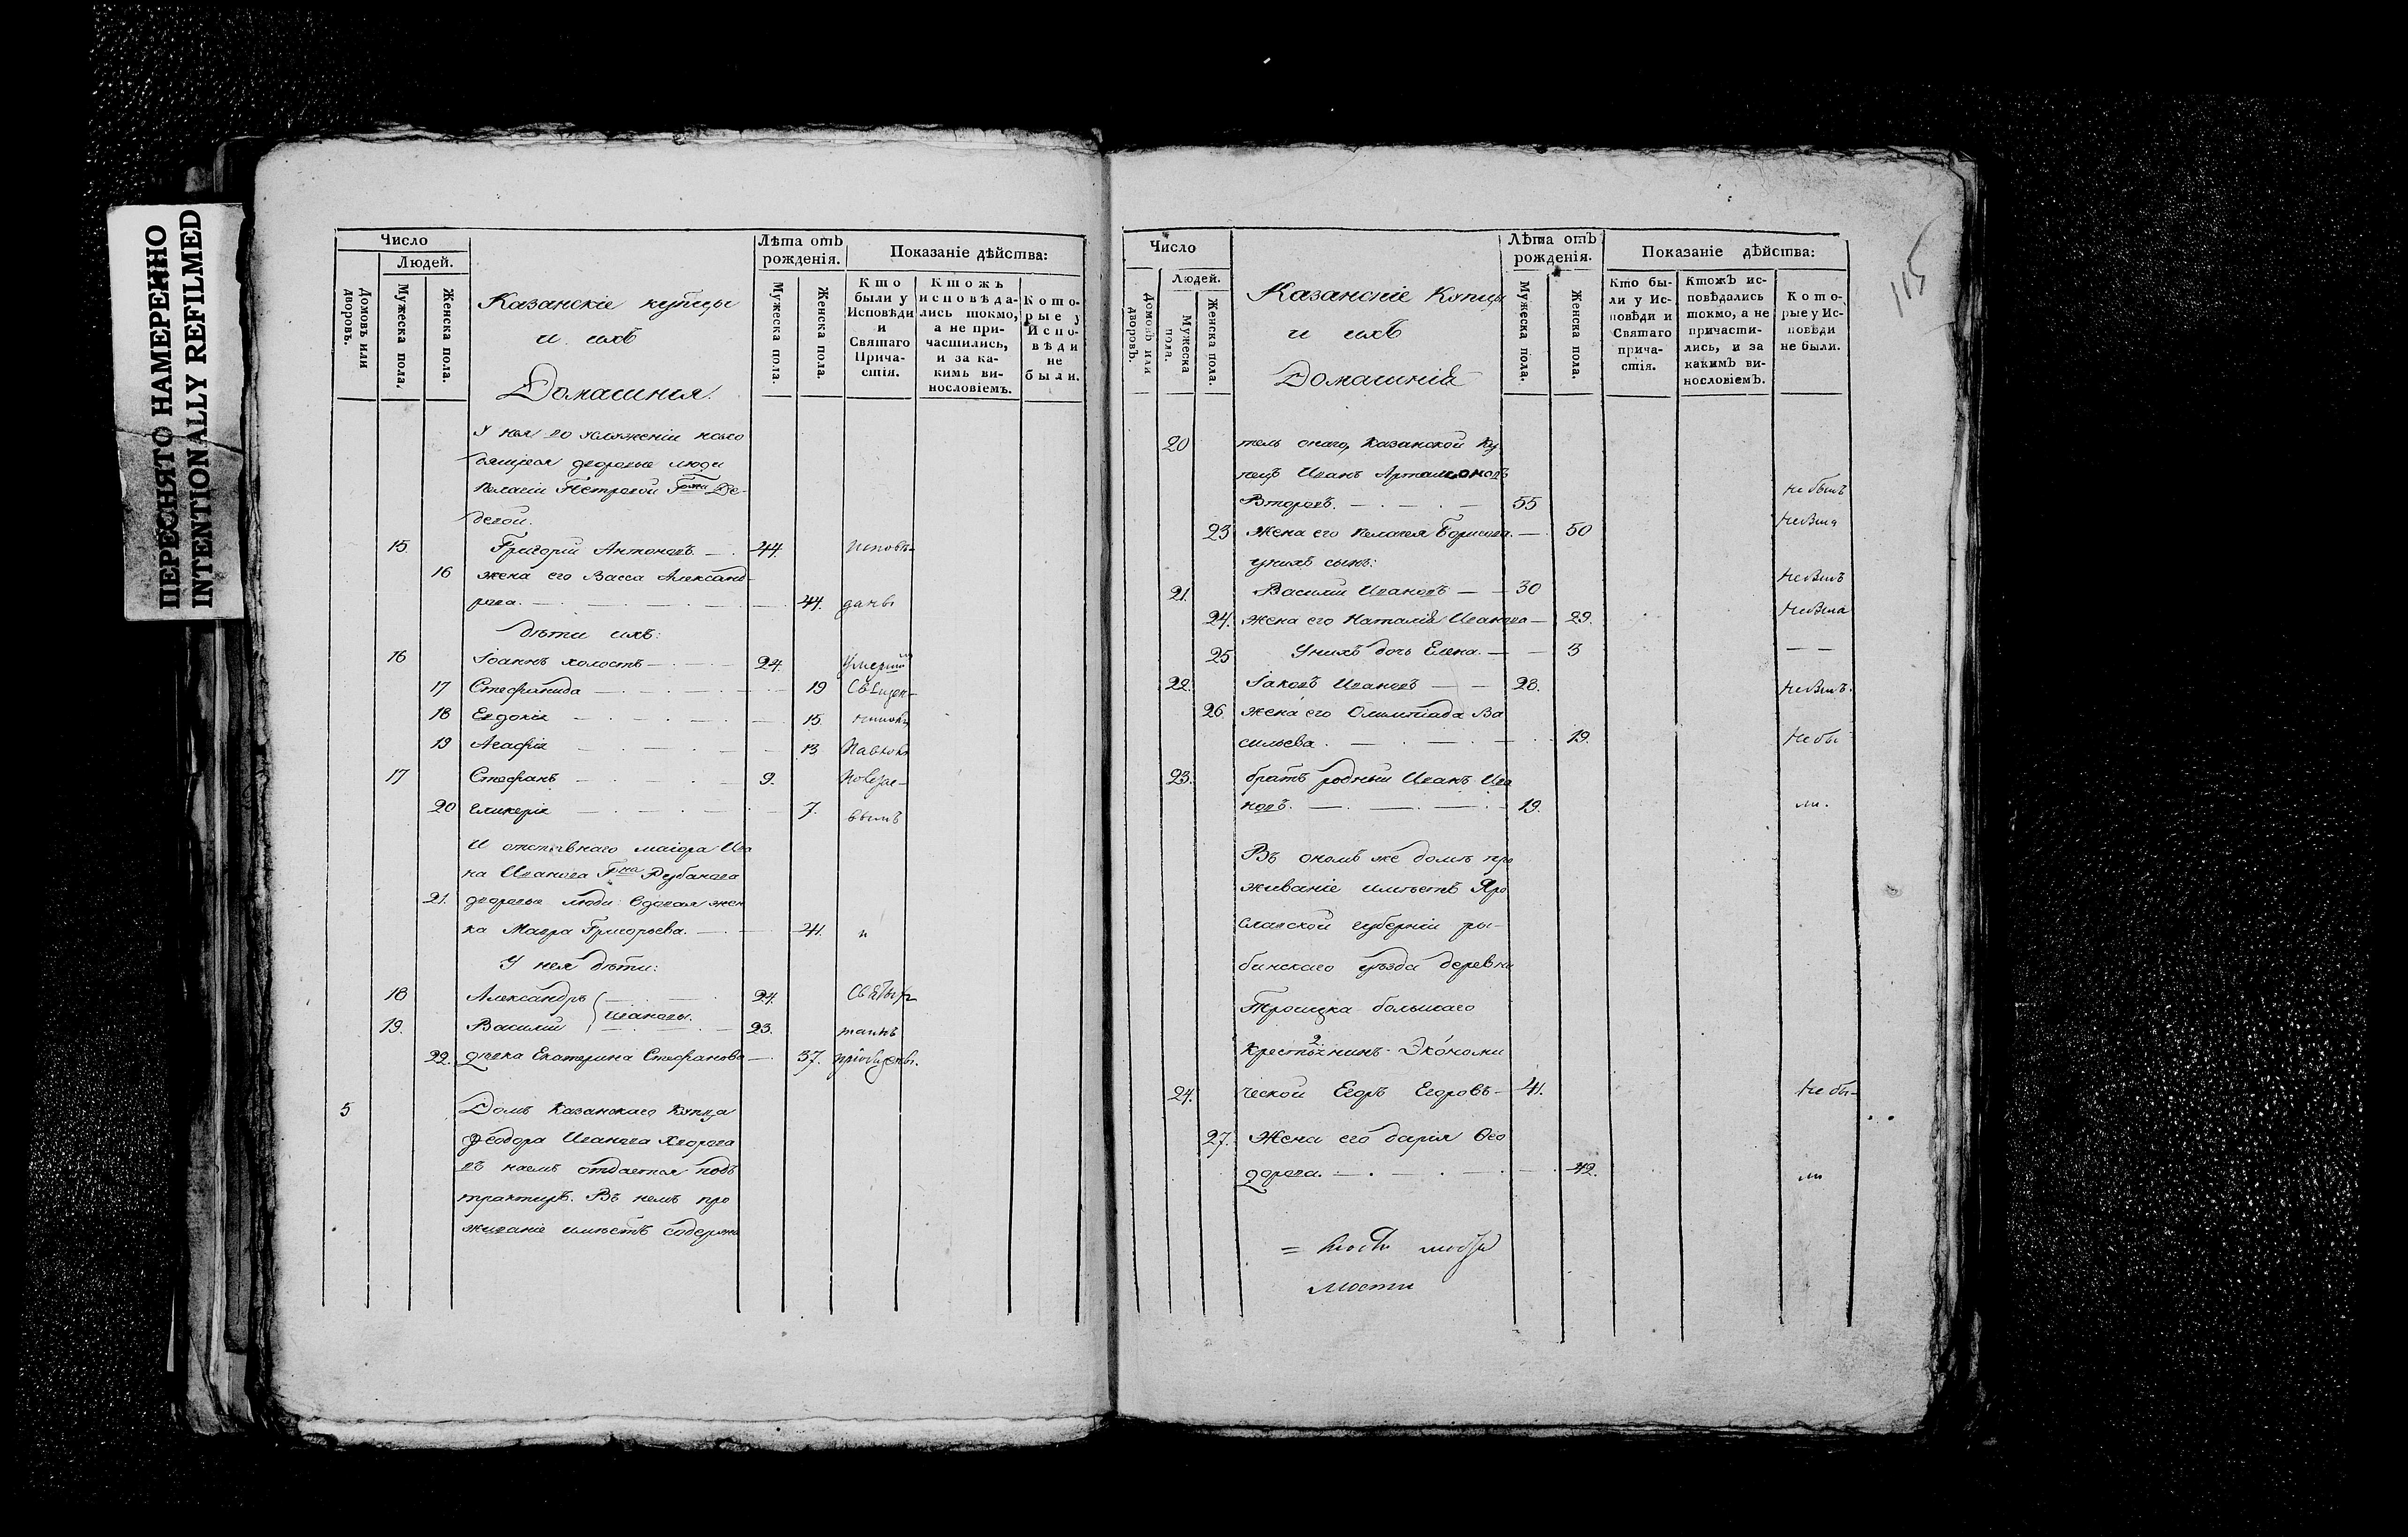 ПЕРЕСНЯТО НАМЕРЕННО
INTENTIONALLY REFILMED
Число
Людей.
Домовъ или дворовъ.
Мужеска пола.
Женска пола.
Казанскіе купцы
и ихъ
Домашнія.
Лѣта отъ рожденія.
Мужеска пола.
Женска пола.
Показаніе дѣйства:
Кто были у Исповѣди и Святаго Прича-стія.
Ктожъ исповѣда-лись токмо, а не при-частились, и за ка-кимъ ви-нословіемъ.
Кото-рые у Испо-вѣди не были.
У нея во услуженіи нахо
дящіеся дворовые люди
Пелагіи Петровой Гжи Де-
бовой.
15. Григорій Антоновъ. — 44. Исповѣ-
16 жена его Васса Александ-
рова. — 44. даны
дѣти ихъ:
16 Іоаннъ холостъ — 24.
17 Стефанида — 19 Священ-
18 Евдокія — 15. никомъ
19 Агафія — 13
17 Стефанъ — 9.
20 Гликерія — 7.
И отставнаго маіора Ива
на Иванова Гна Рубанова
21. дворовые люди: вдовая жен
ка Мавра Григорьева. — 41. и
У нея дѣти:
18 Александръ 24.
Ивановы.
19. Василій 23. таинъ
22. дѣвка Екатерина Стефанова — 37. пріобщены.
5 Домъ Казанскаго Купца
Феодора Иванова Хворова
въ наемъ отдается подъ
трактиръ. Въ немъ про
живаніе имѣетъ содержа
115
Число
Людей.
Домовъ или дворовъ.
Мужеска пола.
Женска пола.
Казанскіе Купцы
и ихъ
Домашнія
Лѣта отъ рожденія.
Мужеска пола.
Женска пола.
Показаніе дѣйства:
Кто бы-ли у Ис-повѣди и Святаго прича-стія.
Ктожъ ис-повѣдались токмо, а не причасти-лись, и за какимъ ви-нословіемъ.
Кото-рые у Ис-повѣди не были.
20 тель онаго, Казанской Ку
пецъ Иванъ Артамоновъ
Второвъ. — 55 не былъ
23 жена его Пелагея Борисова. — 50 не была
у нихъ сынъ:
21. Василій Ивановъ — 30 не былъ
24. жена его Наталія Иванова — 29. не была
25 У нихъ дочь Елена. — 3 — —
22. Іаковъ Ивановъ — 28. не былъ.
26. жена его Олимпіада Ва
сильева. — 19. не бы
23. братъ родный Иванъ Ива
новъ. — 19. ли.
Въ ономъ же домѣ про
живаніе имѣетъ Яро
славской губерніи ры-
бинскаго уѣзда деревни
Троицка большаго
Крестьянинъ Экономи
24. ческой Егоръ Егоровъ — 41. не бы-
27. Жена его дарія Ѳео
дорова. — 42. ли